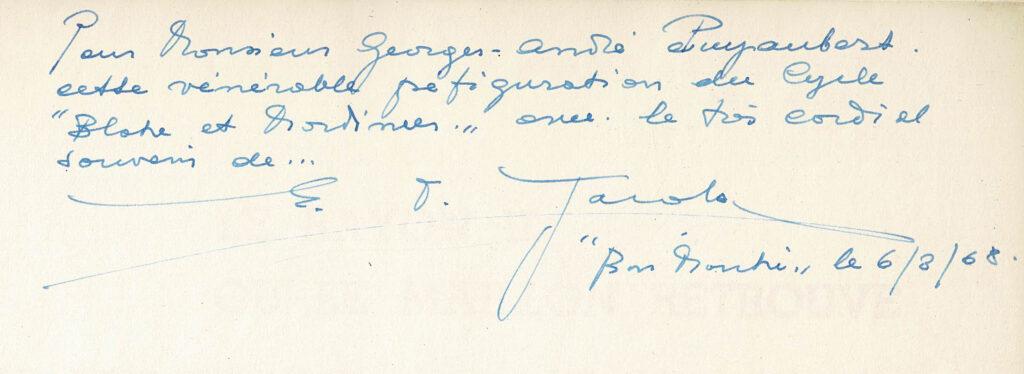 Pour Monsieur Georges-André Puyaubert.
cette vénérable préfiguration du Cycle
"Blake et Mortimer" avec le très cordial
souvenir de...
E. P. Jacobs
"Bois Mouchi" le 6/8/68.
OU LE MAILLON RETROUVÉ